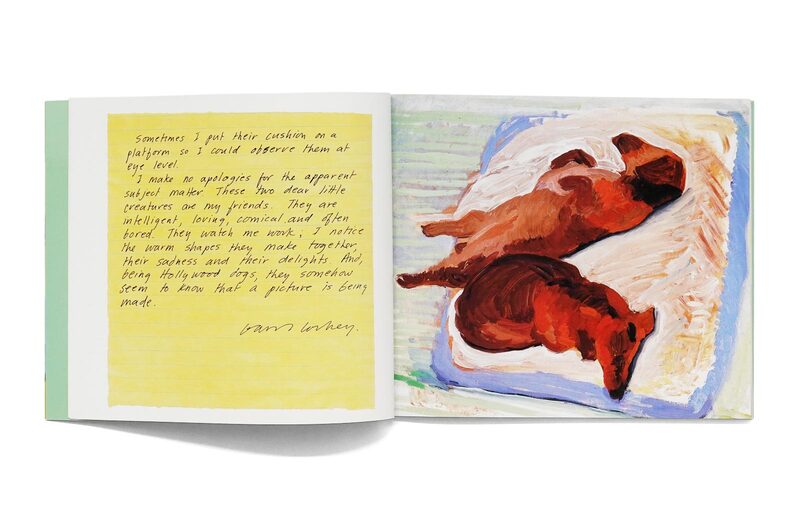 Sometimes I put their cushion on a
platform so I could observe them at
eye level.
I make no apologies for the apparent
subject matter. These two dear little
creatures are my friends. They are
intelligent, loving, comical and often
bored. They watch me work; I notice
the warm shapes they make together,
their sadness and their delights. And,
being Hollywood dogs, they somehow
seem to know that a picture is being
made.
David Hockney.